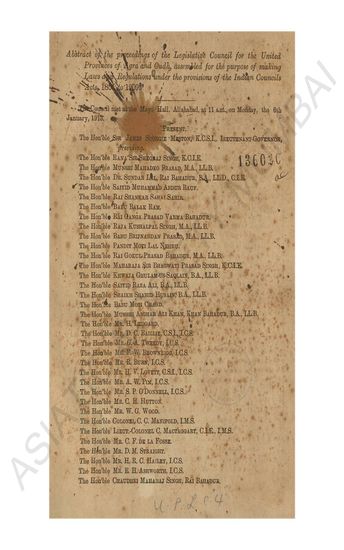 Abstract of the proceedings of the Legislative Council for the United
Provinces of Agra and Oudh, assembled for the purpose of making
Laws and Regulations under the provisions of the Indian Councils
Acts, 1861 to 1909.
The Council met at the Mayo Hall, Allahabad, at 11 A.M., on Monday, the 6th
January, 1913.
PRESENT.
The Hon'ble SIR JAMES SCORGIE MESTON, K.C.S.I., LIEUTENANT-GOVERNOR,
presiding.
The Hon'ble RANA SIR SHEORAJ SINGH, K.C.I.E.
136030
The Hon'ble MUNSHI MAHADEO PRASAD, M.A., LL.B.
The Hon'ble DR. SUNDAR LAL, RAI BAHADUR, B.A., LL.D., C.I.E.
The Hon'ble SAIYID MUHAMMAD ABDUR RAUF.
The Hon'ble RAI SHANKAR SAHAI SAHIB.
The Hon'ble BABU BALAK RAM.
The Hon'ble RAI GANGA PRASAD VARMA BAHADUR.
The Hon'ble RAJA KUSHALPAL SINGH, M.A., LL.B.
The Hon'ble BABU BRIJNANDAN PRASAD, M.A., LL.B.
The Hon'ble PANDIT MOTI LAL NEHRU.
The Hon'ble RAI GOKUL PRASAD BAHADUR, M.A., LL.B.
The Hon'ble MAHARAJA SIR BHAGWATI PRASAD SINGH, K.C.I.E.
The Hon'ble KHWAJA GHULAM-US-SAQLAIN, B.A., LL.B.
The Hon'ble SAIYID RAZA ALI, B.A., LL.B.
The Hon'ble SHAIKH SHAHID HUSAIN, B.A., LL.B.
The Hon'ble BABU MOTI CHAND.
The Hon'ble MUNSHI ASGHAR ALI KHAN, KHAN BAHADUR, B.A., LL.B.
The Hon'ble MR. H. LEDGARD.
The Hon'ble MR. D. C. BAILLIE, C.S.I., I.C.S.
The Hon'ble MR. G. A. TWEEDY, I.C.S.
The Hon'ble MR. F. W. BROWNRIGG, I.C.S.
The Hon'ble MR. R. BURN, I.C.S.
The Hon'ble MR. H. V. LOVETT, C.S.I., I.C.S.
The Hon'ble MR. A. W. PIM, I.C.S.
The Hon'ble MR. S. P. O'DONNELL, I.C.S.
The Hon'ble MR. C. H. HUTTON.
The Hon'ble MR. W. G. WOOD.
The Hon'ble COLONEL C. C. MANIFOLD, I.M.S.
The Hon'ble LIEUT.-COLONEL C. MACTAGGART, C.I.E., I.M.S.
The Hon'ble MR. C. F. DE LA FOSSE.
The Hon'ble MR. D. M. STRAIGHT.
The Hon'ble MR. H. R. C. HAILEY, I.C.S.
The Hon'ble MR. R. H. ASHWORTH, I.C.S.
The Hon'ble CHAUDHRI MAHARAJ SINGH, RAI BAHADUR.